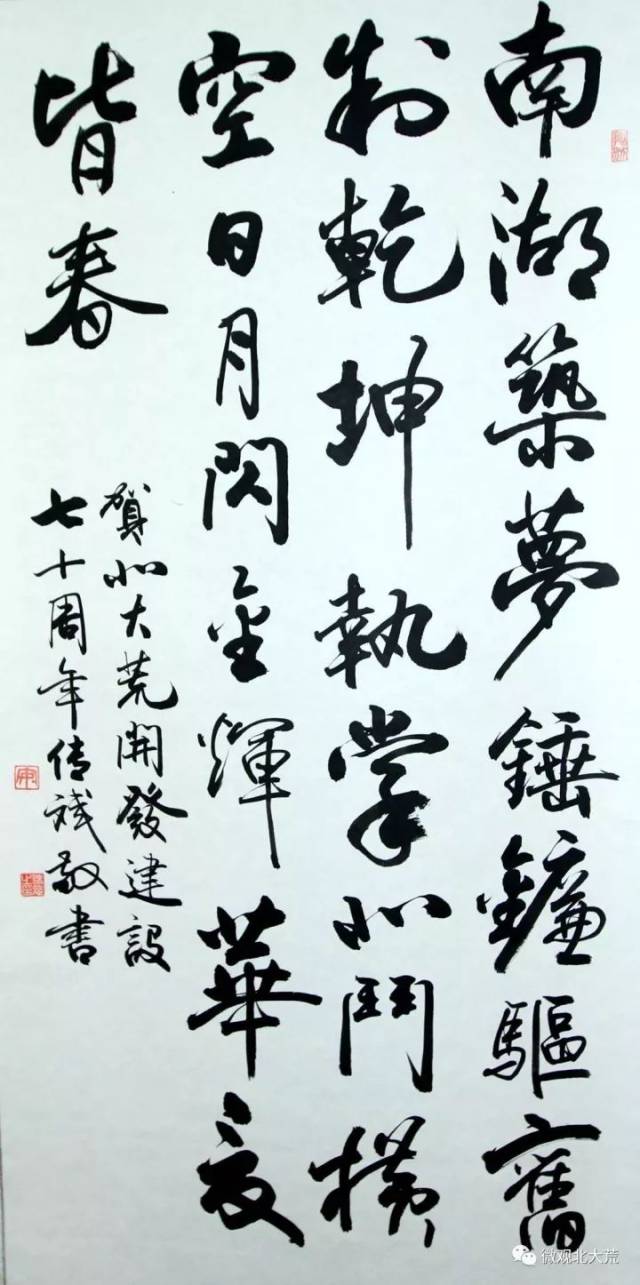 南湖築夢錘鐮驅舊
制乾坤執掌北鬥橫
空日月閃金輝華夏
皆春
賀北大荒開發建設
七十周年敬書
微观北大荒